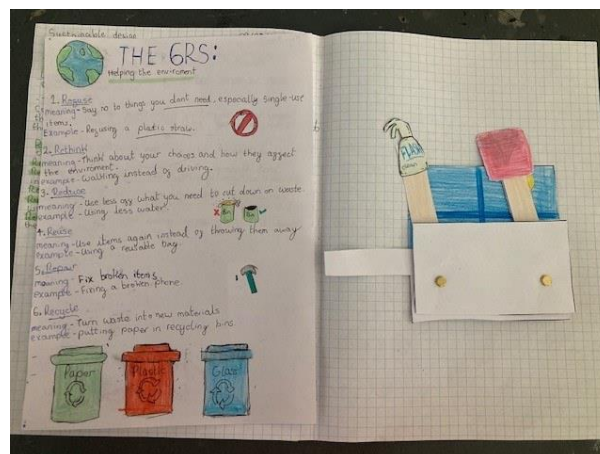 Sustainable design
THE 6RS:
Helping the enviroment
1. Refuse
meaning - Say no to things you dont need, especially single-use
items.
Example - Refusing a plastic straw.
2. Rethink
meaning - Think about your choices and how they affect
the enviroment.
example - Walking instead of driving.
3. Reduce
meaning - Use less off what you need to cut down on waste.
example - Using less water.
4. Reuse
meaning - Use items again instead of throwing them away
example - Using a reusable bag
5. Repair
meaning - Fix broken items.
example - Fixing a broken phone
6. Recycle
meaning - Turn waste into new materials
example - putting paper in recycling bins.
Paper
Plastic
Glass
FLASH